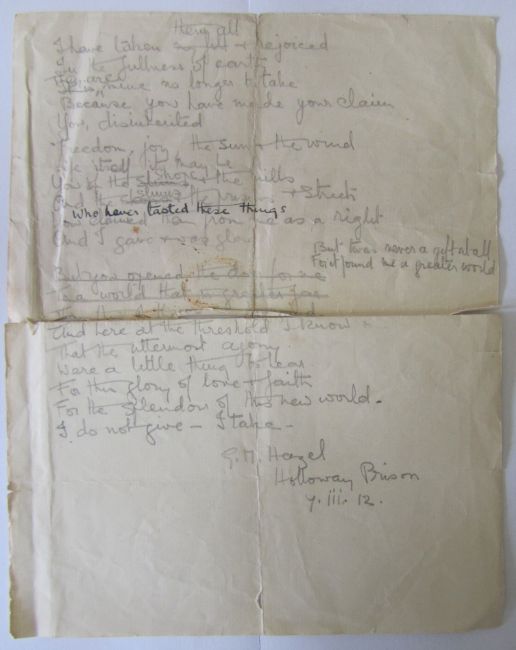 Them all
I have taken & rejoiced
In the fullness of earth
They are mine no longer to take
Because you have made your claim
You, disinherited
Freedom, joy the sun & the wind
life itself it may be
You of the shops & the mills
And the slums & Streets
Who never tasted these things
You claimed them from me as a right
And I gave & was glad
But twas never a gift at all
For it found me a greater world
But you opened the door for me
To a world that
And here at the threshold I know
That the uttermost agony
Were a little thing to bear
For this glory of love & faith
For the splendour of this new world -
I do not give - I take -
G. M. Hazel
Holloway Prison
7. iii. 12.